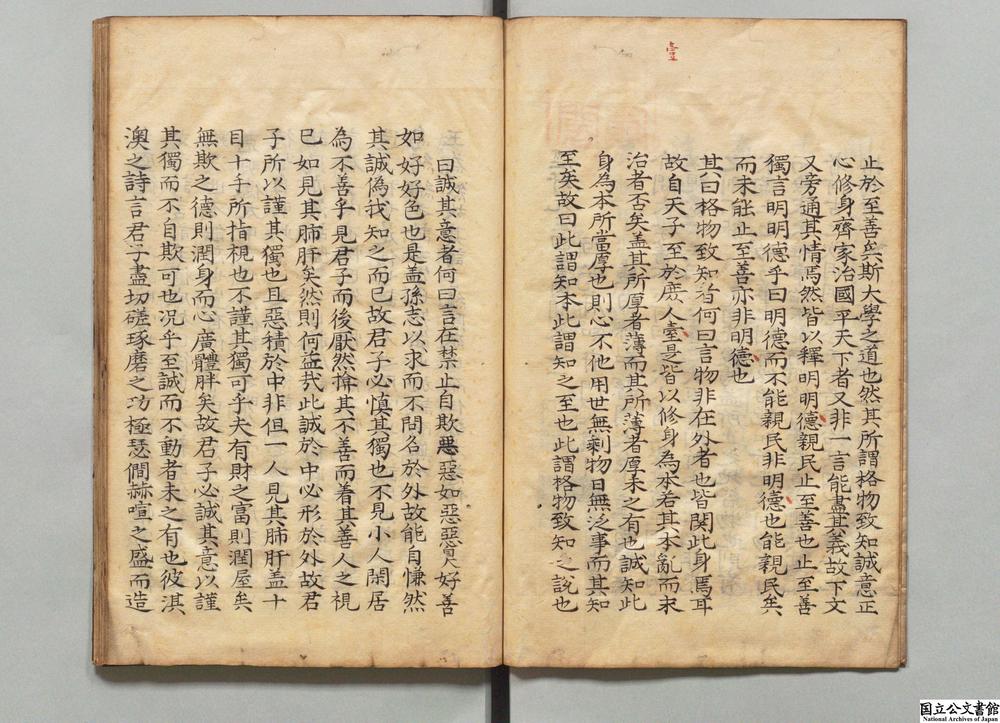 壹
止於至善矣斯大學之道也然其所謂格物致知誠意正
心修身齊家治國平天下者又非一言能盡其義故下文
又旁通其情焉然皆以釋明明德親民止至善也止至善
獨言明明德乎曰明德而不能親民非明德也能親民矣
而未能止至善亦非明德也
其曰格物致知者何曰言物非在外者也皆関此身焉耳
故自天子至於庶人壹是皆以修身為本若其本亂而末
治者否矣盖其所厚者薄而其所薄者厚未之有也誠知此
身為本所當厚也則心不他用世無剩物日無泛事而其知
至矣故曰此謂知本此謂知之至也此謂格物致知之說也
曰誠其意者何曰言在禁止自欺惡惡如惡惡臭好善
如好好色也是盖孫志以求而不問名於外故能自慊然
其誠僞我知之而已故君子必慎其獨也不見小人閑居
為不善乎見君子而後厭然揜其不善而着其善人之視
已如見其肺肝矣然則何益哉此誠於中必形於外故君
子所以謹其獨也且惡積於中非但一人見其肺肝盖十
目十手所指視也不謹其獨可乎夫有財之富則潤屋矣
無欺之德則潤身而心廣體胖矣故君子必誠其意以謹
其獨而不自欺可也况乎至誠而不動者未之有也彼淇
澳之詩言君子盡切磋琢磨之功極瑟僩赫喧之盛而造
国立公文書館
National Archives of Japan